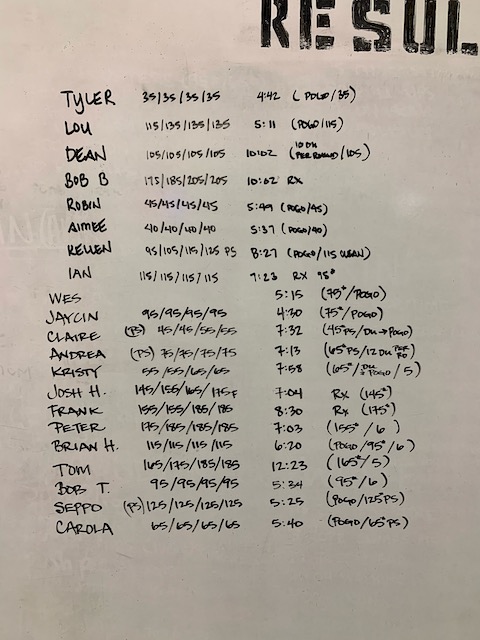 RESUL
TYLER 35/35/35/35 4:42 (POGO/35)
LOU 115/135/135/135 5:11 (POGO/115)
DEAN 105/105/105/105 10:02 (10 DU PER ROUND/105)
BOB B 175/185/205/205 10:02 RX
ROBIN 45/45/45/45 5:49 (POGO/45)
AIMEE 40/40/40/40 5:37 (POGO/40)
KELLEN 95/105/115/125 PS 8:27 (POGO/115 CLEAN)
IAN 115/115/115/115 7:23 RX 95#
WES 5:15 (75#/POGO)
JAYCIN 95/95/95/95 4:30 (75#/POGO)
CLAIRE (PS) 45/45/55/55 7:32 (45#PS/DU→POGO)
ANDREA (PS) 75/75/75/75 7:13 (65#PS/12 DU PER RD)
KRISTY 55/55/65/65 7:58 (65#/DU POGO/5)
JOSH H. 145/155/165/175F 7:04 RX (145#)
FRANK 155/155/185/185 8:30 RX (175#)
PETER 175/185/185/185 7:03 (155#/6)
BRIAN H. 115/115/115/115 6:20 (POGO/95#/6)
TOM 165/175/185/185 12:23 (165#/5)
BOB T. 95/95/95/95 5:34 (95#/6)
SEPPO (PS) 125/125/125/125 5:25 (POGO/125PS)
CAROLA 65/65/65/65 5:40 (POGO/65#PS)